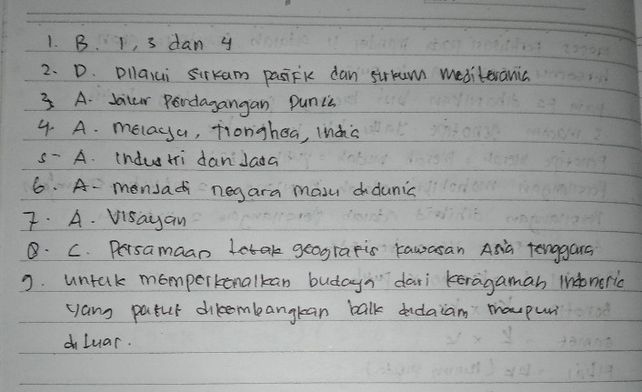 1. B. 1, 3 dan 4
2. D. Dilalui sirkum pasifik dan sirkum mediterania
3. A. Jalur Perdagangan Dunia
4. A. melayu, tionghoa, india
5- A. industri dan Jasa
6. A- menjadi negara maju didunia
7. A. Visayan
8. C. Persamaan letak geografis kawasan Asia Tenggara
9. untuk memperkenalkan budaya dari keragaman Indonesia
yang patut dikembangkan baik didalam maupun
di luar.